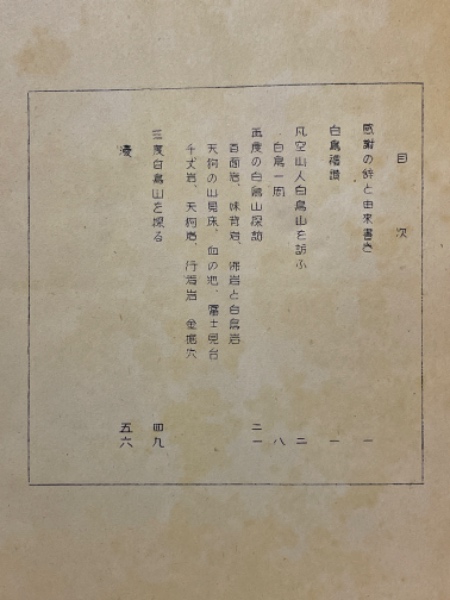 目次
感謝の辞と由来書き 一
白鳥禮讃 一
凡空山人白鳥山を訪ふ 二
白鳥一周 八
再度の白鳥山探訪 二一
百面岩、妹背岩、沸岩と白鳥岩
天狗の山見床、血の池、富士見台
千丈岩、天狗岩、行者岩 金掘穴
三度白鳥山を探る 四九
五六